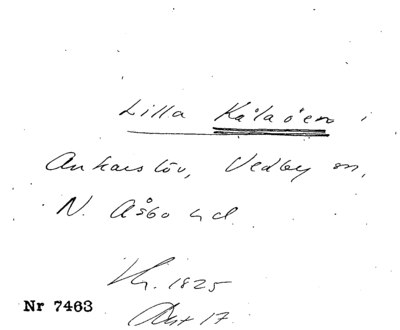 Lilla Kålaåern i
Ankarslöv, Vedby sn,
N. Åsbo hd
Kh. 1825
Akt 17
Nr 7463